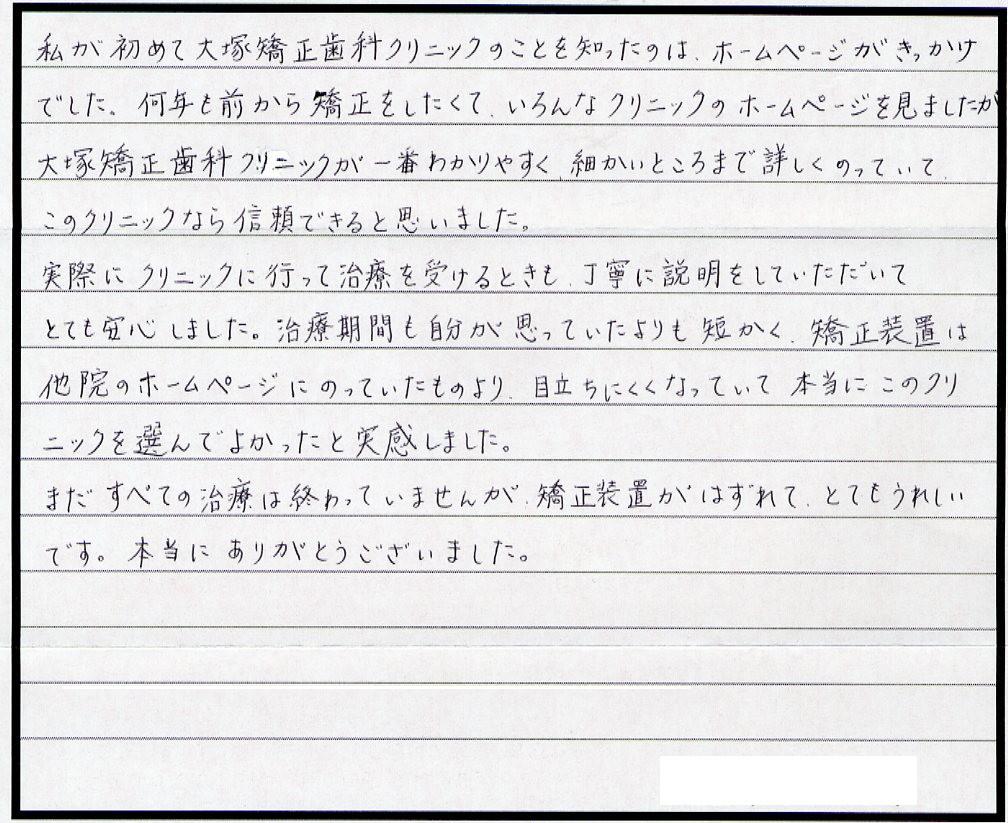 私が初めて大塚矯正歯科クリニックのことを知ったのは、ホームページがきっかけ
でした。何年も前から矯正をしたくて、いろんなクリニックのホームページを見ましたが
大塚矯正歯科クリニックが一番わかりやすく、細かいところまで詳しくのっていて、
このクリニックなら信頼できると思いました。
実際にクリニックに行って治療を受けるときも、丁寧に説明をしていただいて
とても安心しました。治療期間も自分が思っていたよりも短かく、矯正装置は
他院のホームページにのっていたものより、目立ちにくくなっていて本当にこのクリ
ニックを選んでよかったと実感しました。
まだすべての治療は終わっていませんが、矯正装置がはずれて、とてもうれしい
です。本当にありがとうございました。